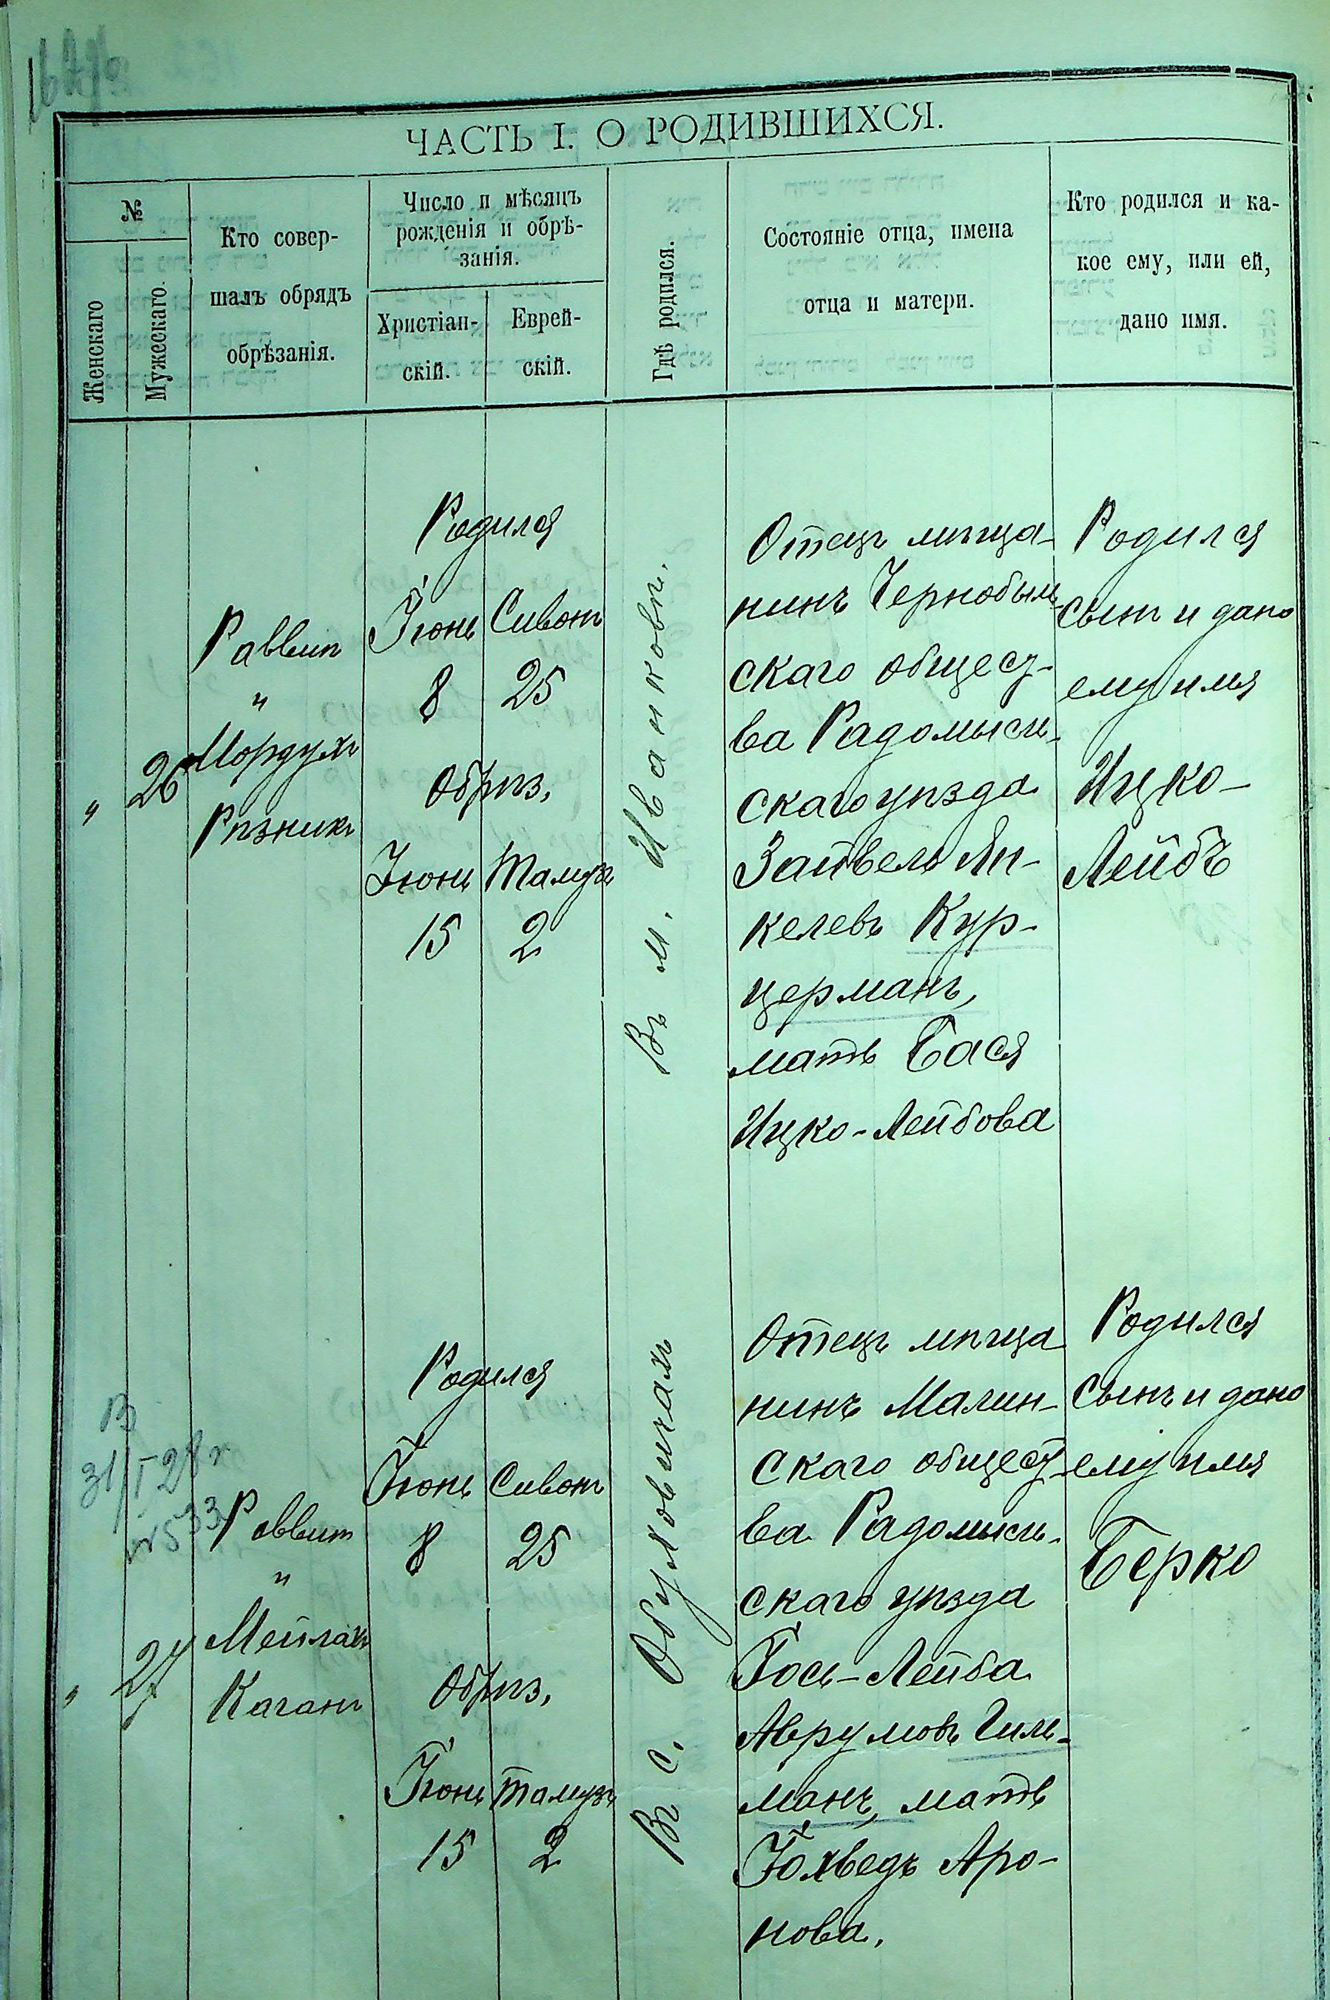 ЧАСТЬ I. О РОДИВШИХСЯ.
№
Женскаго
Мужескаго.
Кто совер-
шалъ обрядъ
обрѣзанія.
Число и мѣсяцъ
рожденія и обрѣ-
занія.
Христіан-
скій.
Еврей-
скій.
Гдѣ родился.
Состояніе отца, имена
отца и матери.
Кто родился и ка-
кое ему, или ей,
дано имя.
"
26
Раввинъ
"
Мордухъ
Рѣзникъ
Родился
Іюнь Сивонъ
8 25
Обрѣз.
Іюнь Тамузъ
15 2
Въ м. Иванковѣ.
Отецъ мѣща-
нинъ Чернобыль-
скаго общест-
ва Радомысль-
скаго уѣзда
Зайвель Ян-
келевъ Кур-
церманъ,
мать Бася
Ицко-Лейбова
Родился
сынъ и дано
ему имя
Ицко-
Лейбъ
В
31/I 28 г
№533
"
27
Раввинъ
"
Мейлахъ
Каганъ
Родился
Іюнь Сивонъ
8 25
Обрѣз.
Іюнь Тамузъ
15 2
Въ с. Обуховичахъ
Отецъ мѣща
нинъ Малин-
скаго общест-
ва Радомысль-
скаго уѣзда
Іось-Лейба
Аврумовъ Гиль-
манъ, мать
Іохведъ Аро-
нова.
Родился
сынъ и дано
ему имя
Берко